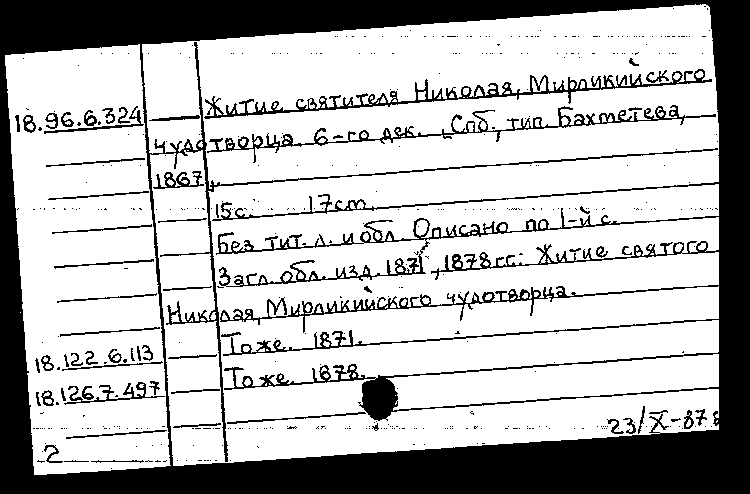 18.96.6.324 Житие святителя Николая, Мирликийского
чудотворца. 6-го дек. Спб., тип. Бахметева,
1867.
15с. 17cm.
Без тит. л. и обл. Описано по 1-й с.
Загл. обл. изд. 1871, 1878 гг.: Житие святого
Николая, Мирликийского чудотворца.
18.122.6.113 То же. 1871.
18.126.7.497 То же. 1878.
2 23/X-87г